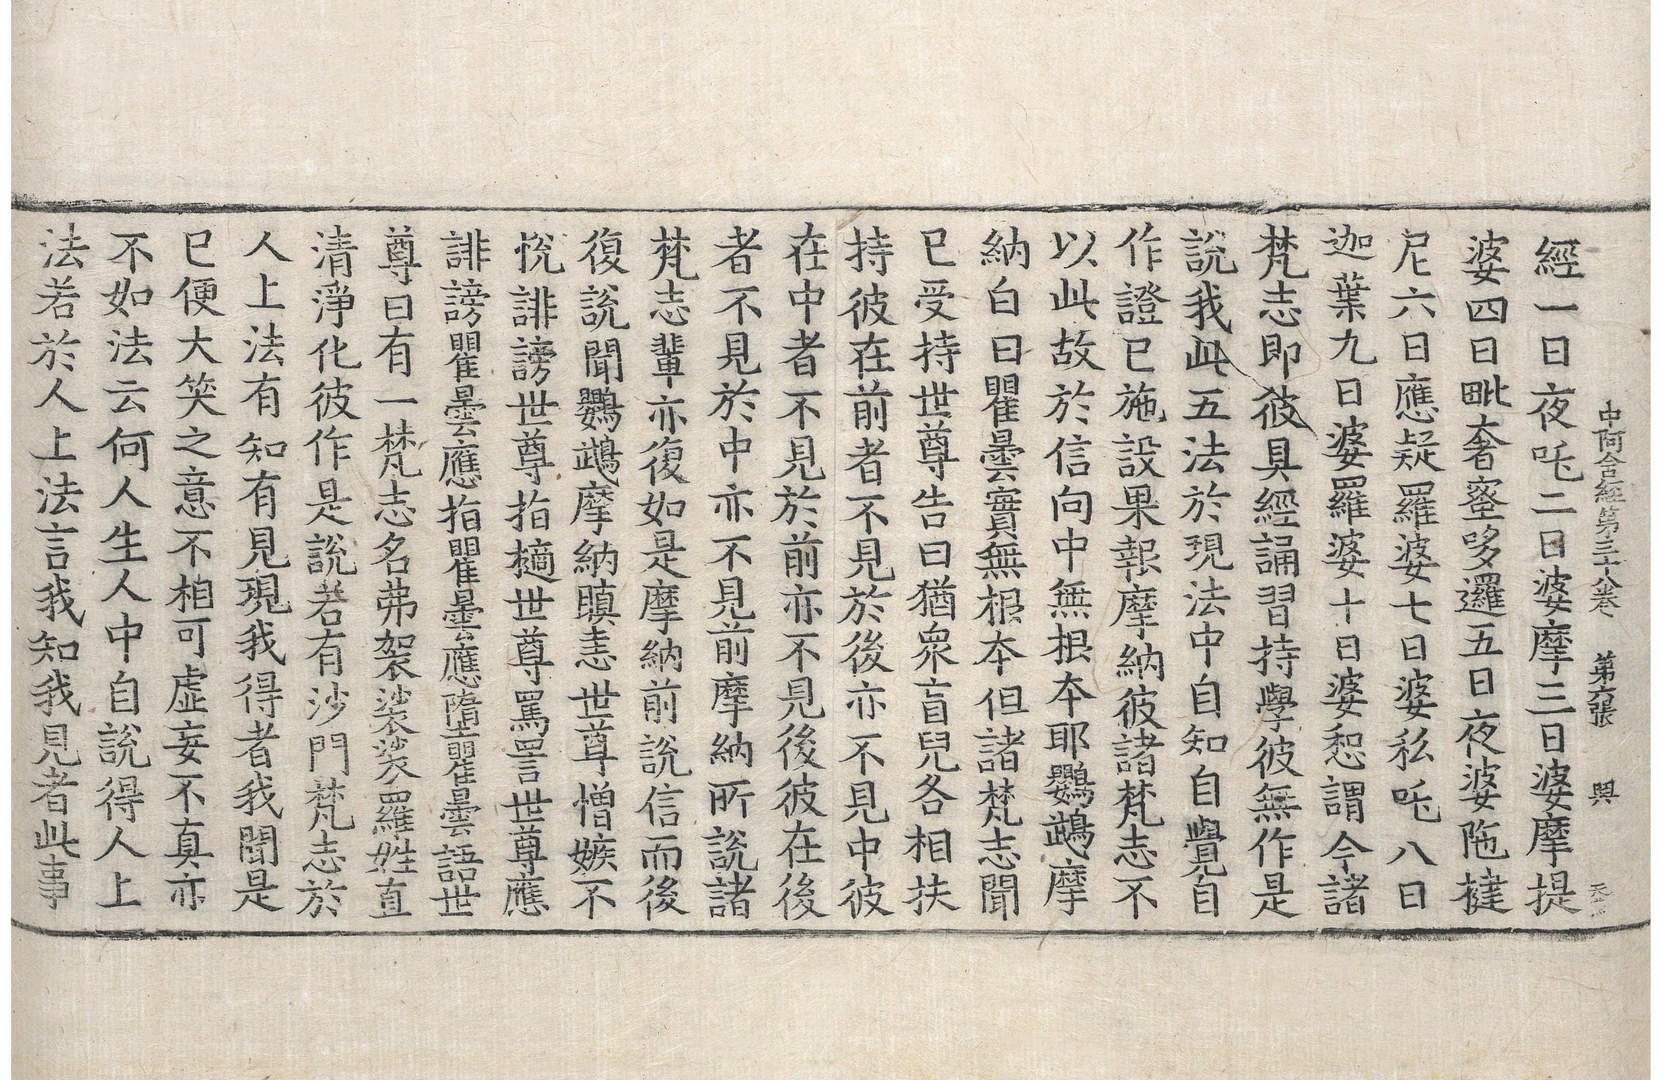 中阿含經第三十八卷　第六張　興
經一曰夜吒二曰婆摩三曰婆摩提
婆四曰毗奢蜜哆邏五曰夜婆陁揵
尼六曰應疑羅婆七曰婆私吒八曰
迦葉九曰婆羅婆十曰婆婆恕謂今諸
梵志即彼具經誦習持學彼無作是
說我此五法於現法中自知自覺自
作證已施設果報摩納彼諸梵志不
以此故於信向中無根本耶鸚鵡摩
納白曰瞿曇實無根本但諸梵志聞
已受持世尊告曰猶衆盲兒各相扶
持彼在前者不見於後亦不見中彼
在中者不見於前亦不見後彼在後
者不見於中亦不見前摩納所說諸
梵志輩亦復如是摩納前說信而後
復說聞鸚鵡摩納瞋恚世尊憎嫉不
悅誹謗世尊指擿世尊罵詈世尊應
誹謗瞿曇應指瞿曇應墮瞿曇語世
尊曰有一梵志名弗袈裟裟羅姓直
清淨化彼作是說若有沙門梵志於
人上法有知有見現我得者我聞是
已便大笑之意不相可虛妄不真亦
不如法云何人生人中自說得人上
法若於人上法言我知我見者此事